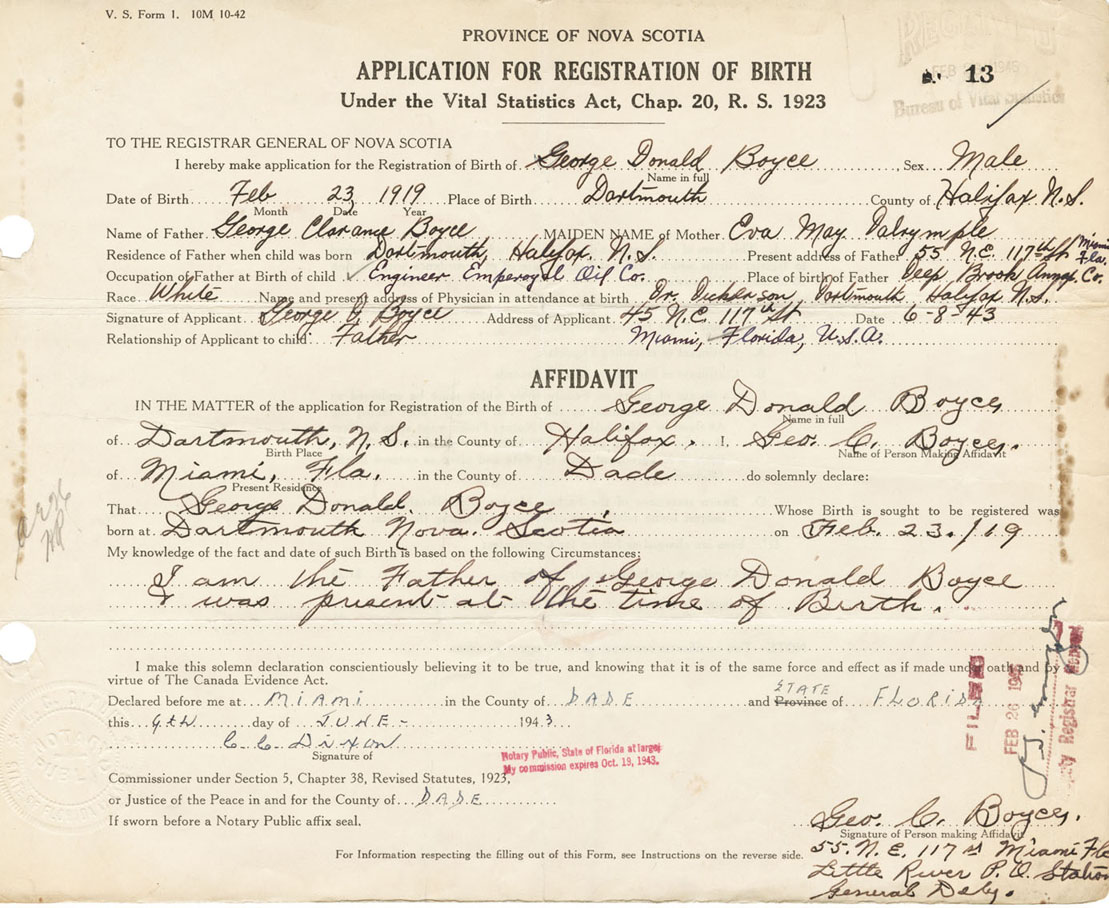 V. S. Form 1. 10M 10-42
PROVINCE OF NOVA SCOTIA
APPLICATION FOR REGISTRATION OF BIRTH
Under the Vital Statistics Act, Chap. 20, R. S. 1923
13
FEB 1945
Bureau of Vital Statistics
TO THE REGISTRAR GENERAL OF NOVA SCOTIA
I hereby make application for the Registration of Birth of George Donald Boyce Sex Male
Name in full
Date of Birth Feb 23 1919 Place of Birth Dartmouth County of Halifax N.S.
Month Date Year
Name of Father George Clarance Boyce MAIDEN NAME of Mother Eva May Dalrymple
Residence of Father when child was born Dartmouth, Halifax. N.S. Present address of Father 55 N.E. 117th St Miami Fla.
Occupation of Father at Birth of child Engineer Emperoyal Oil Co. Place of birth of Father Deep Brook Annap. Co.
Race White Name and present address of Physician in attendance at birth Dr. Dickerson, Dartmouth, Halifax N.S.
Signature of Applicant George C. Boyce Address of Applicant 45 N.E. 117th St Date 6-8-43
Relationship of Applicant to child Father Miami, Florida, U.S.A.
AFFIDAVIT
IN THE MATTER of the application for Registration of the Birth of George Donald Boyce
Name in full
of Dartmouth, N.S. in the County of Halifax. I, Geo. C. Boyce.
Birth Place Name of Person Making Affidavit
of Miami, Fla. in the County of Dade do solemnly declare:
Present Residence
That George Donald. Boyce Whose Birth is sought to be registered was
born at Dartmouth Nova. Scotia on Feb. 23./19
My knowledge of the fact and date of such Birth is based on the following Circumstances:
I am the Father of George Donald Boyce
I was present at the time of Birth.
I make this solemn declaration conscientiously believing it to be true, and knowing that it is of the same force and effect as if made under oath and by
virtue of The Canada Evidence Act.
Declared before me at MIAMI in the County of DADE and Province STATE of FLORIDA
this day of JUNE - 1943
C. C. Dixon
Signature of
Notary Public, State of Florida at large;
My commission expires Oct. 19, 1943.
Commissioner under Section 5, Chapter 38, Revised Statutes, 1923,
or Justice of the Peace in and for the County of DADE
If sworn before a Notary Public affix seal.
FILED
FEB 26 1945
Deputy Registrar General
Geo. C. Boyce.
Signature of Person making Affidavit
55. N.E. 117 St Miami Fla
Little River P.O. Station
General Dely.
For Information respecting the filling out of this Form, see Instructions on the reverse side.